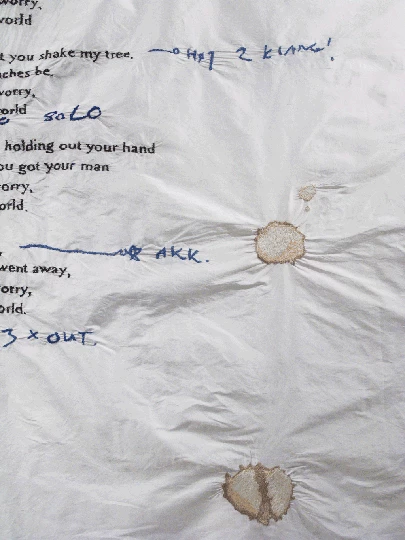 worry,
world
t you shake my tree. 2 KLANG!
ches be.
worry,
orld
SOLO
holding out your hand
ou got your man
orry,
orld.
AKK.
went away,
orry,
orld.
3 x OUT.